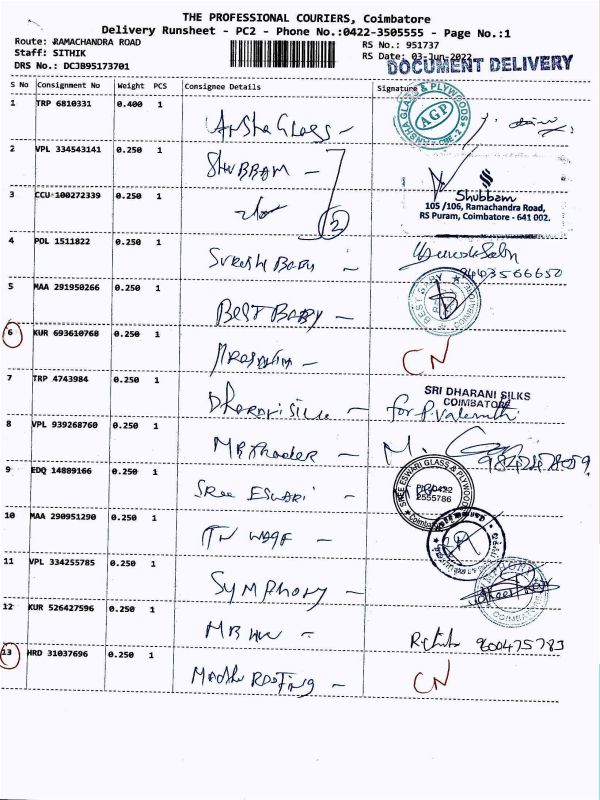 THE PROFESSIONAL COURIERS, Coimbatore
Delivery Runsheet - PC2 - Phone No.:0422-3505555 - Page No.:1
Route: RAMACHANDRA ROAD
RS No.: 951737
Staff: SITHIK
RS Date: 03-Jun-2022
DRS No.: DCJB95173701
DOCUMENT DELIVERY
S No Consignment No Weight PCS Consignee Details Signature
1 TRP 6810331 0.400 1
Arsha Glass -
ARSHA GLASS & PLYWOODS
AGP
CBE-2
2 VPL 334543141 0.250 1
SHUBBAM -
3 CCU 100272339 0.250 1
2
Shubbam
105 /106, Ramachandra Road,
RS Puram, Coimbatore - 641 002.
4 POL 1511822 0.250 1
Suresh Babu -
9443566650
5 MAA 291950266 0.250 1
BEST BABY -
BEST BABY
6 KUR 693610768 0.250 1
CN
7 TRP 4743984 0.250 1
Dharani Silk -
SRI DHARANI SILKS
COIMBATORE
for P. Valarmathi
8 VPL 939268760 0.250 1
9 EDQ 14889166 0.250 1
SREE ESWARI -
SREE ESWARI GLASS & PLYWOODS
2555786
Coimbatore
10 MAA 290951290 0.250 1
11 VPL 334255785 0.250 1
SYMPHONY -
SYMPHONY
COIMBATORE
12 KUR 526427596 0.250 1
13 HRD 31037696 0.250 1
Madhu Roofing -
CN